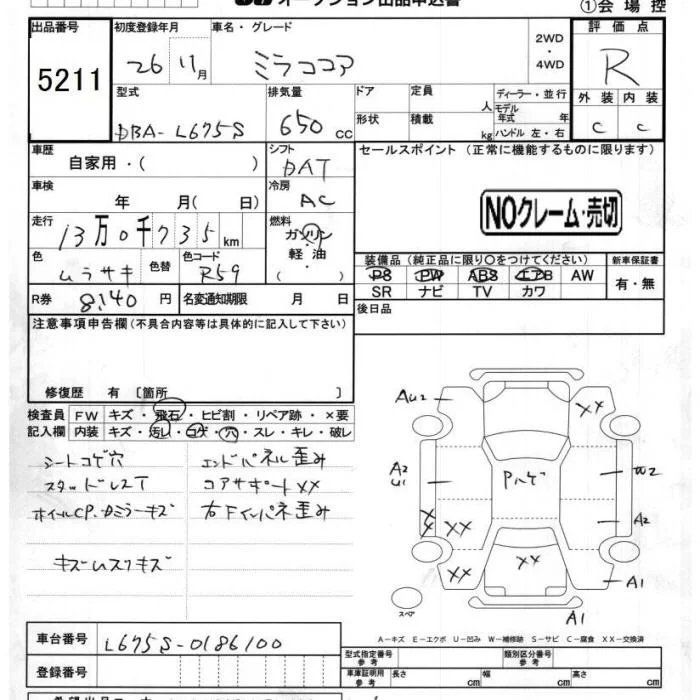 オークション出品申込書
①会場控
出品番号 初度登録年月 車名・グレード 2WD・4WD 評価点
5211 26 11月 ミラココア R
型式 排気量 ドア 定員 人 ディーラー・並行 外装 内装
DBA-L675S 650cc 形状 積載 kg モデル年式 年 ハンドル 左・右 C C
車歴 シフト セールスポイント(正常に機能するものに限ります)
自家用・( ) DAT
車検 冷房
年 月( 日) AC
NOクレーム・売切
走行 燃料
13万0千735km ガソリン・軽油( )
色 色替 色コード 装備品(純正品に限り○をつけてください) 新車保証書
ムラサキ R59 PS PW ABS エアB AW 有・無
SR ナビ TV カワ
R券 8,140円 名変通知期限 月 日 後日品
注意事項申告欄(不具合内容等は具体的に記入して下さい)
修復歴 有〔箇所 〕
検査員 FW キズ・飛石・ヒビ割・リペア跡・×要
記入欄 内装 キズ・汚レ・コゲ・穴・スレ・キレ・破レ
シートコゲ穴 エンドパネル歪み
スタッドレスT コアサポートXX
ホイルCP.ドミラーキズ 右Fインパネ歪み
キズムスウキズ
AU2 XX
A2 U1 Pハゲ W2
XX XX A2
XX XX A1
スペア A1
A-キズ E-エクボ U-凹み W-補修跡 S-サビ C-腐食 XX-交換済
車台番号 L675S-0186100
登録番号
型式指定番号 参考 類別区分番号 参考
車庫証明用 参考 長さ cm 幅 cm 高さ cm